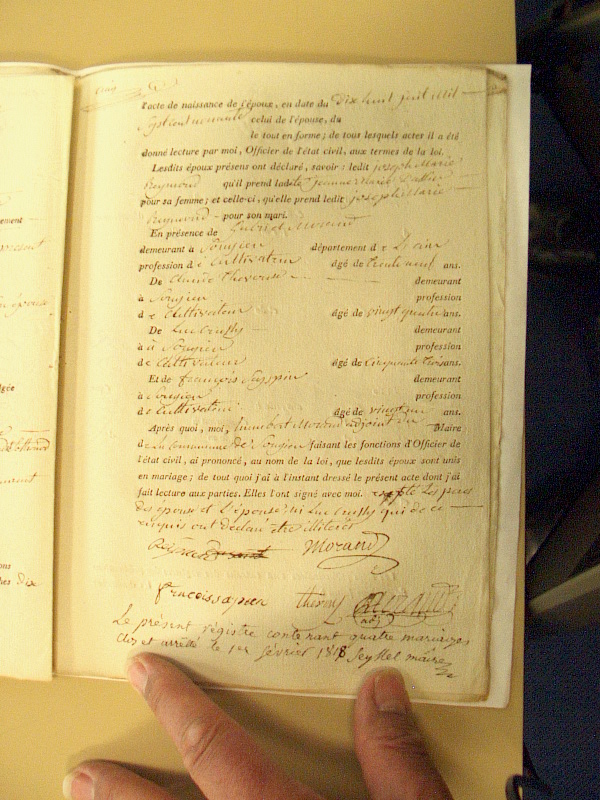 l'acte de naissance de l'époux, en date du dix huit juit mil
sept cent nonante celui de l'épouse, du
le tout en forme; de tous lesquels actes il a été
donné lecture par moi, Officier de l'état civil, aux termes de la loi.
Lesdits époux présens ont déclaré, savoir: ledit joseph Marie
Reymond qu'il prend ladite jeanne Marie
pour sa femme; et celle-ci, qu'elle prend ledit joseph Marie
Reymond pour son mari.
En présence de Gabriel Morand
demeurant à Songieu département de L'ain
profession de Cultivateur âgé de trente neuf ans.
De Claude demeurant
à Songieu profession
de Cultivateur âgé de vingt quatre ans.
De Luc demeurant
à à Songieu profession
de Cultivateur âgé de Cinquante trois ans.
Et de françois demeurant
à Songieu profession
de Cultivateur âgé de vingt un ans.
Après quoi, moi, humbert Morand adjoint du Maire
de la Commune de Songieu faisant les fonctions d'Officier de
l'état civil, ai prononcé, au nom de la loi, que lesdits époux sont unis
en mariage; de tout quoi j'ai à l'instant dressé le présent acte dont j'ai
fait lecture aux parties. Elles l'ont signé avec moi. excepté Les peres
des epoux et L'épouse ni Luc qui de ce
requis ont déclaré etre illiterés
Morand
francois
Le présent régistre contenant quatre mariages
Clos et arrêté le 1er février 1818 Seyssel maire
ement
épouse
gée
ons
dix